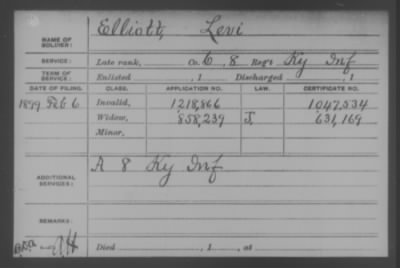 NAME OF SOLDIER: Elliott, Levi
SERVICE: Late rank, Co. C, 8 Reg't Ky Inf
TERM OF SERVICE: Enlisted , 1 Discharged , 1
DATE OF FILING. CLASS. APPLICATION NO. LAW. CERTIFICATE NO.
1899 Feb 6 Invalid, 1218,866 1047,534
Widow, 858,239 J. 631,169
Minor,
ADDITIONAL SERVICES: A 8 Ky Inf
REMARKS:
Died , 1 , at